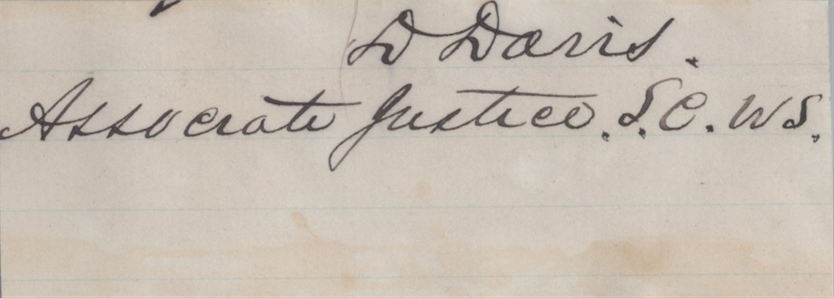 D Davis.
Associate Justice. S.C. U.S.